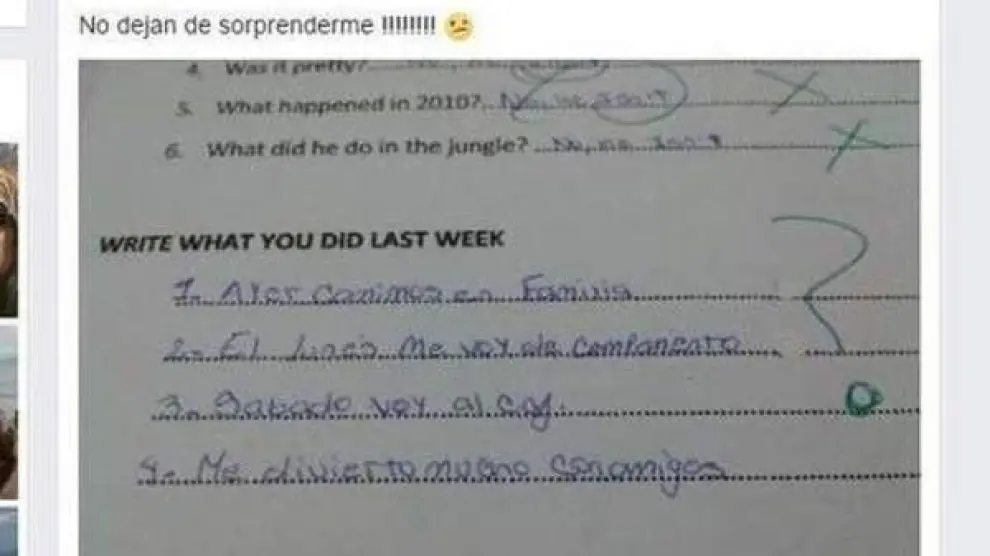 No dejan de sorprenderme !!!!!!!!!
4. Was it pretty?
5. What happened in 2010?.. No, he
6. What did he do in the jungle? ...No,
WRITE WHAT YOU DID LAST WEEK
1.- Ayer comimos en Familia
2.- El lunes Me voy de campamento
3.- Sabado voy al
4.- Me divierto mucho con amigos
?